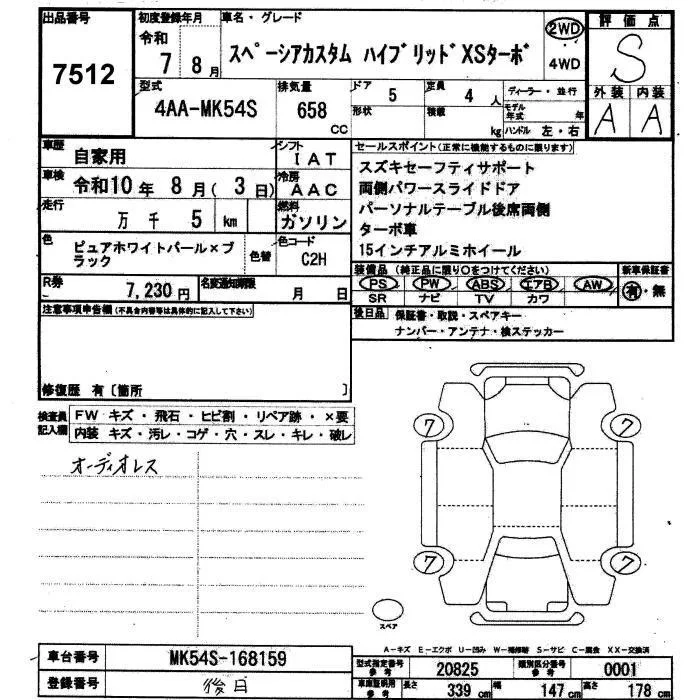 出品番号
7512
初度登録年月
令和
7 8月
車名・グレード
スペーシアカスタム ハイブリッドXSターボ
2WD
4WD
評価点
S
外装 内装
A A
型式
4AA-MK54S
排気量
658
CC
ドア
5
定員
4 人
形状
積載
kg
ディーラー・並行
モデル年式 年
ハンドル 左・右
車歴
自家用
シフト
IAT
車検
令和10年 8月( 3日)
冷房
AAC
走行
万 千 5 km
燃料
ガソリン
色
ピュアホワイトパール×ブ
ラック
色替
色コード
C2H
R券
7,230円
名変通知期限
月 日
セールスポイント(正常に機能するものに限ります)
スズキセーフティサポート
両側パワースライドドア
パーソナルテーブル後席両側
ターボ車
15インチアルミホイール
装備品 (純正品に限り○をつけてください)
PS PW ABS エアB AW
SR ナビ TV カワ
新車保証書
有・無
後日品 保証書・取説・スペアキー
ナンバー・アンテナ・検ステッカー
注意事項申告欄(不具合内容等は具体的に記入して下さい)
修復歴 有〔箇所 〕
検査員
記入欄
FW キズ・飛石・ヒビ割・リペア跡・×要
内装 キズ・汚レ・コゲ・穴・スレ・キレ・破レ
オーディオレス
7 7
7 7
スペア
A-キズ E-エクボ U-凹み W-補修跡 S-サビ C-腐食 XX-交換済
車台番号
MK54S-168159
登録番号
後日
型式指定番号
参考
20825
類別区分番号
参考
0001
車庫証明用
参考
長さ
339 cm
幅
147 cm
高さ
178 cm